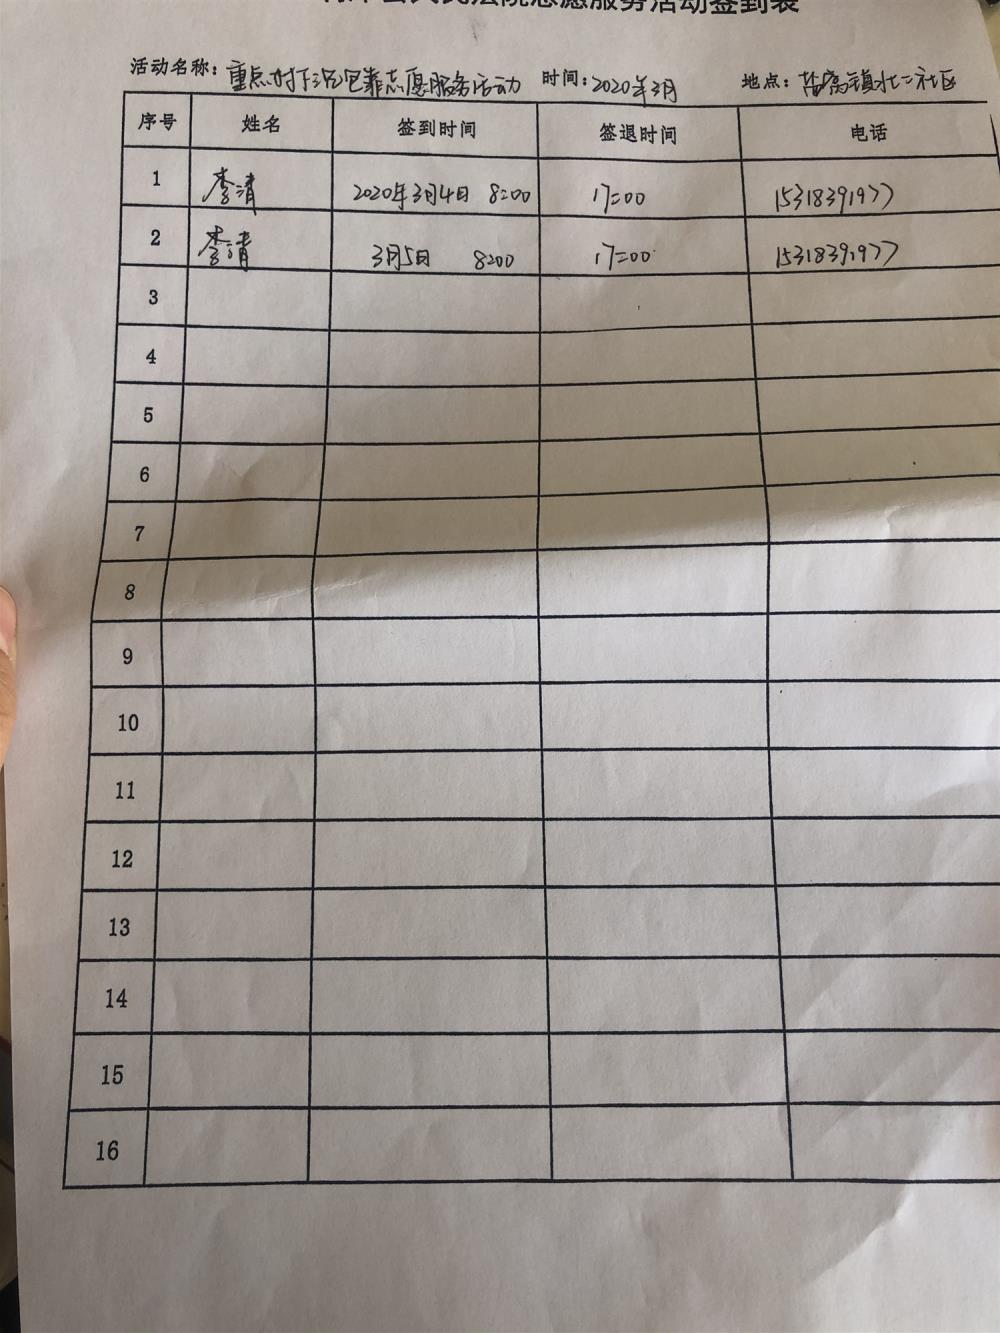 人民法院志愿服务活动签到表
活动名称：重点村下沉包靠志愿服务活动 时间：2020年3月 地点：盐窝镇北二社区
序号 姓名 签到时间 签退时间 电话
1 李清 2020年3月4日 8:00 17:00 15318391977
2 李清 3月5日 8:00 17:00 15318391977
3
4
5
6
7
8
9
10
11
12
13
14
15
16